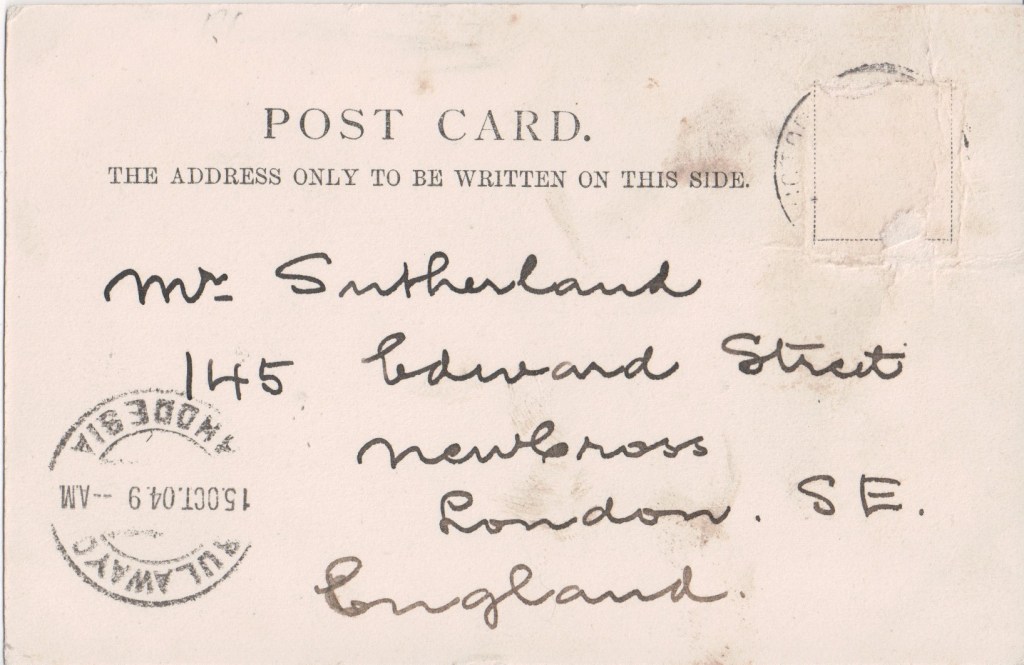 POST CARD.
THE ADDRESS ONLY TO BE WRITTEN ON THIS SIDE.
Mr Sutherland
145 Edward Street
New Cross
London. S E.
England.
BULAWAYO
15.OCT.04.9 -- AM
RHODESIA